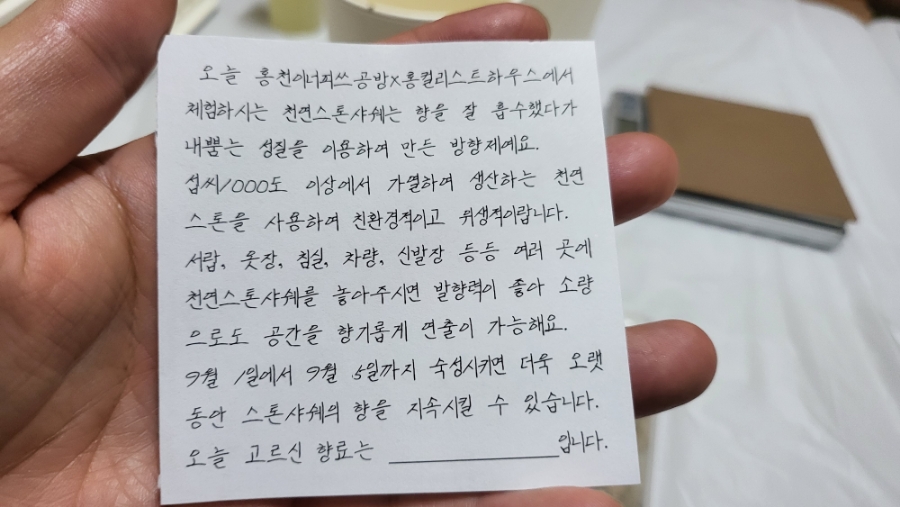 오늘 홍천이너피쓰공방x홍컬리스트하우스에서
체험하시는 천연스톤샤쉐는 향을 잘 흡수했다가
내뿜는 성질을 이용하여 만든 방향제예요.
섭씨1000도 이상에서 가열하여 생산하는 천연
스톤을 사용하여 친환경적이고 위생적이랍니다.
서랍, 옷장, 침실, 차량, 신발장 등등 여러 곳에
천연스톤샤쉐를 놓아주시면 발향력이 좋아 소량
으로도 공간을 향기롭게 연출이 가능해요.
9월 1일에서 9월 5일까지 숙성시키면 더욱 오랫
동안 스톤샤쉐의 향을 지속시킬 수 있습니다.
오늘 고르신 향료는 ______________입니다.